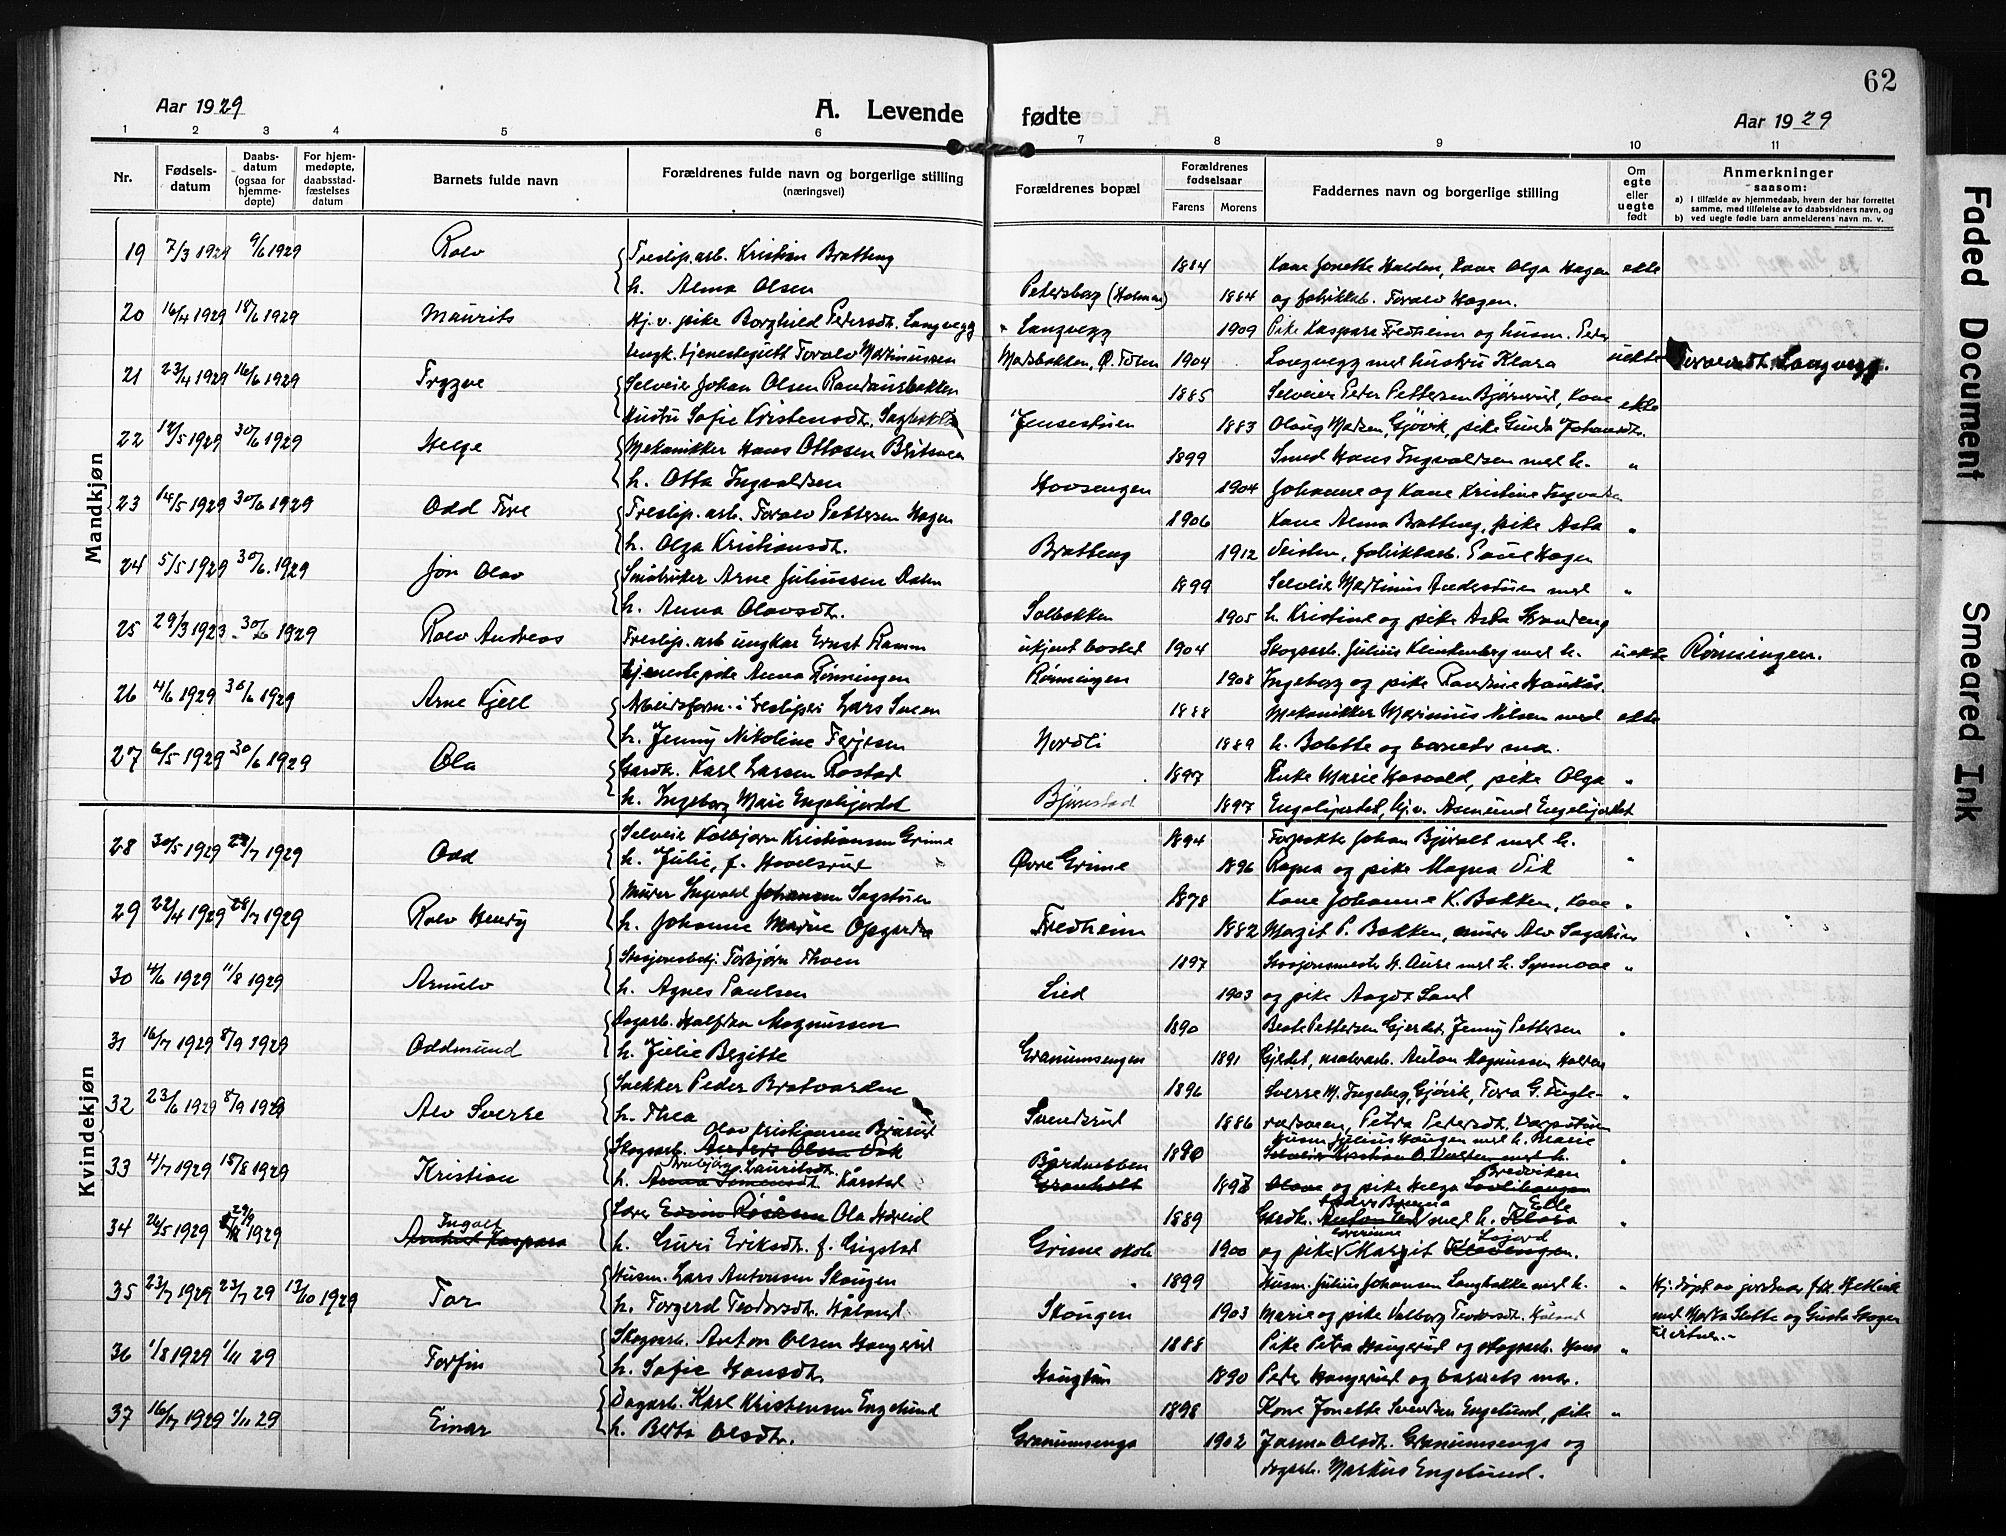 62
Aar 1929
A. Levende fødte
Aar 1929
1 2 3 4 5 6 7 8 9 10 11
Nr.
Fødsels-
datum
Daabs-
datum
(ogsaa for
hjemme-
døpte)
For hjem-
medøpte,
daabsstad-
fæstelses
datum
Barnets fulde navn
Forældrenes fulde navn og borgerlige stilling
(næringsvei)
Forældrenes bopæl
Forældrenes
fødselsaar
Farens Morens
Faddernes navn og borgerlige stilling
Om
egte
eller
uegte
født
Anmerkninger
saasom:
a) I tilfælde av hjemmedaab, hvem der har forrettet
samme, med tilføielse av to daabsvidners navn, og
b) ved uegte fødte barn anmelderens navn m. v.
Mandkjøn
19 7/3 1929 9/6 1929 Rolv Treslip.arb. Kristian Bratteng 1884 Kone Jonette Halden, Kone Olga Hagen ekte
h. Alma Olsen Petersborg 1884 og fabrikkarb. Toralv Hagen.
20 16/4 1929 1929 Maurits Hj.v. pike Borghild Pedersdt. Langvegg Langvegg 1909 Pike Kaspara Fredheim og husm. Peder
Ungk. tjenestegutt Toralv Martinussen Marsbakken, Ø. Toten 1904 Langvegg med hustru Klara uekte Langvegg.
21 23/4 1929 16/6 1929 Trygve Selveier Johan Olsen Randausbakken 1885 Selveier Peder Pettersen Bjørnerud, Kone ekte
Hustru Sofie Kristensdt. Jensestuen 1883 Olaug Madsen, Gjøvik, pike Gunda Johansdt.
22 1929 30/6 1929 Helge Mekanikker Hans Ottosen 1899 Smed Hans Ingvaldsen med h. "
h. Otta Ingvaldsen Hovsengen 1904 Johanne og Kone Kristine Ingvalds
23 14/5 1929 30/6 1929 Odd Tore Treslip.arb. Toralv Pettersen Hagen 1906 Kone Alma Bratteng, pike Asta "
h. Olga Kristiansdt. Bratteng 1912 Neisten, fabrikkarb. Paul Hagen
24 5/5 1929 30/6 1929 Jon Olav Småbruker Arne Juliussen 1899 Selveier Martinus Anderstuen med "
h. Anna Olavsdt. Solbakken 1905 h. Kristine og pike Asta Strandeng
25 29/3 1923 30/6 1929 Rolv Andreas Treslip.arb. ungkar Ernst Ramm ukjent bosted 1904 Skogsarb. Julius Klinkenberg med h. uekte Rønningen.
tjenestepike Anna Rønningen Rønningen 1908 Ingeborg og pike Randine Haukås.
26 4/6 1929 30/6 1929 Arne Kjell Arbeidsform. i tresliperi Lars Sveen 1888 Mekanikker Marinius Nilsen med ekte
h. Jenny Nikoline Terjesen Nordli 1889 h. Bolette og barnets mor.
27 6/5 1929 30/6 1929 Ola Gardbr. Karl Larsen Rostad 1897 Enke Marie Hasvold, pike Olga "
h. Ingeborg Marie Engehjordet Bjørnstad 1897 Engehjordet, hj.v. Asmund Engehjordet
Kvindekjøn
28 30/5 1929 1929 Odd Selveier Kolbjørn Kristiansen Grime 1894 Forpakter Johan Bjøralt med h. "
h. Julie, f. Hovelsrud Øvre Grime 1896 Ragna og pike Magna Vik
29 22/4 1929 28/7 1929 Rolv Henry Murer Ingvald Johansen Sagstuen 1878 Kone Johanne K. Bakken, Kone "
h. Johanne Marie Fredheim 1882 Margit P. Bakken, murer Alv Sagstuen
30 4/6 1929 11/8 1929 Arnulv Stasjonsbetj. Torbjørn Thoen 1897 Stasjonsmester H. Aure med h. Synnøve "
h. Agnes Paulsen Lied 1903 og pike Aagot Lund
31 16/7 1929 8/9 1929 Oddmund Dagarb. Halfdan Magnussen 1890 Beate Pettersen Gjerdet, Jenny Pettersen "
h. Julie Bergitte Granumsengen 1891 Gjerdet, malerarb. Anton Magnussen Halden
32 23/6 1929 8/9 1929 Alv Sverre Snekker Peder Bratvarden 1896 Sverre M. Ingeberg, Gjøvik, Tora G. Fugle- "
h. Thea Svendsrud 1886 Petra Pedersdt.
Olav Kristiansen Brurud Husm. Julius Haugen med h. Marie
33 4/7 1929 15/8 1929 Kristian Skogsarb. Anders Olsen Vik 1890 Selveier Kristian med h. "
h. Anna Simensdt. Lauritsdt. Kårstad Bårdnebben Granholt 1897 og pike Helga Bredviken
34 26/5 1929 29/9 1929 Ingolf Lærer Ola Hareid 1889 Gardbr. med h. Klara "
h. Guri Eriksdt. f. Gigstad Grime skole 1900 og pike Margit
35 23/7 1929 23/7 29 13/10 1929 Tor Husm. Lars Antonsen Skougen 1899 Husm. Julius Johansen Langbakke med h. " Hj. døpt av jordmor frk.
h. Torgerd Teodorsdt. Håland. Skougen 1903 Marie og pike Valborg Teodorsdt. Håland med Marta Sletta og Gusta Skogen
til vitner.-
36 1/8 1929 1/11 29 Torfin Skogsarb. Anton Olsen Haugerud 1888 Pike Petra Haugerud og skogsarb. Hans "
h. Sofie Hansdt. Haugtun 1890 Peder Haugerud og barnets mor.
37 16/7 1929 1/11 29 Einar Dagarb. Karl Kristensen Engelund 1898 Kone Jonette Svendsen Engelund, pike "
h. Berta Olsdt. Granumsenga 1902 Janna Olsdt. Granumsenga og
dagarb. Markus Engelund.
Faded Document
Smeared Ink